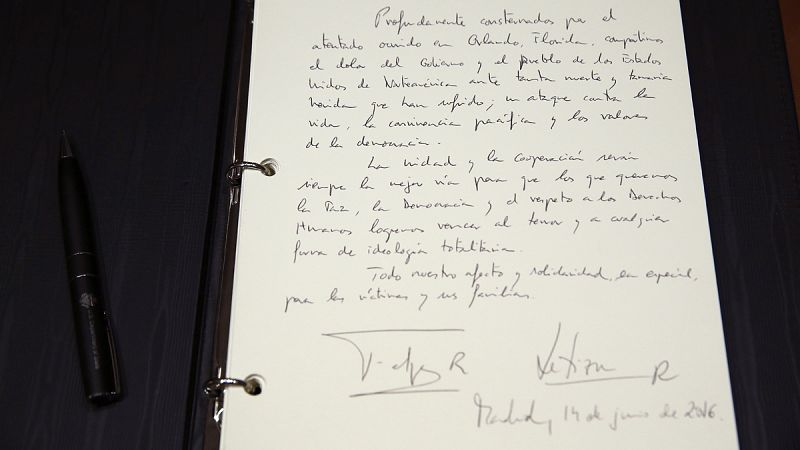 Profundamente consternados por el
atentado ocurrido en Orlando, Florida, compartimos
el dolor del Gobierno y el Pueblo de los Estados
Unidos de Norteamérica ante tanta muerte y tamaña
herida que han sufrido; un ataque contra la
vida, la convivencia pacífica y los valores
de la democracia.
La unidad y la cooperación serán
siempre la mejor vía para que los que queremos
la Paz, la Democracia y el respeto a los Derechos
Humanos logremos vencer al terror y a cualquier
forma de ideología totalitaria.
Todo nuestro afecto y solidaridad, en especial,
para las víctimas y sus familias.
Felipe R
Letizia R
Madrid, 14 de junio de 2016.